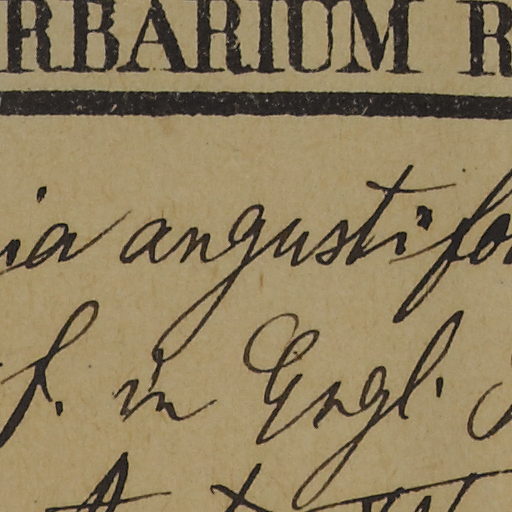 RBARIUM R
ia angustifo
f. in Engl. J